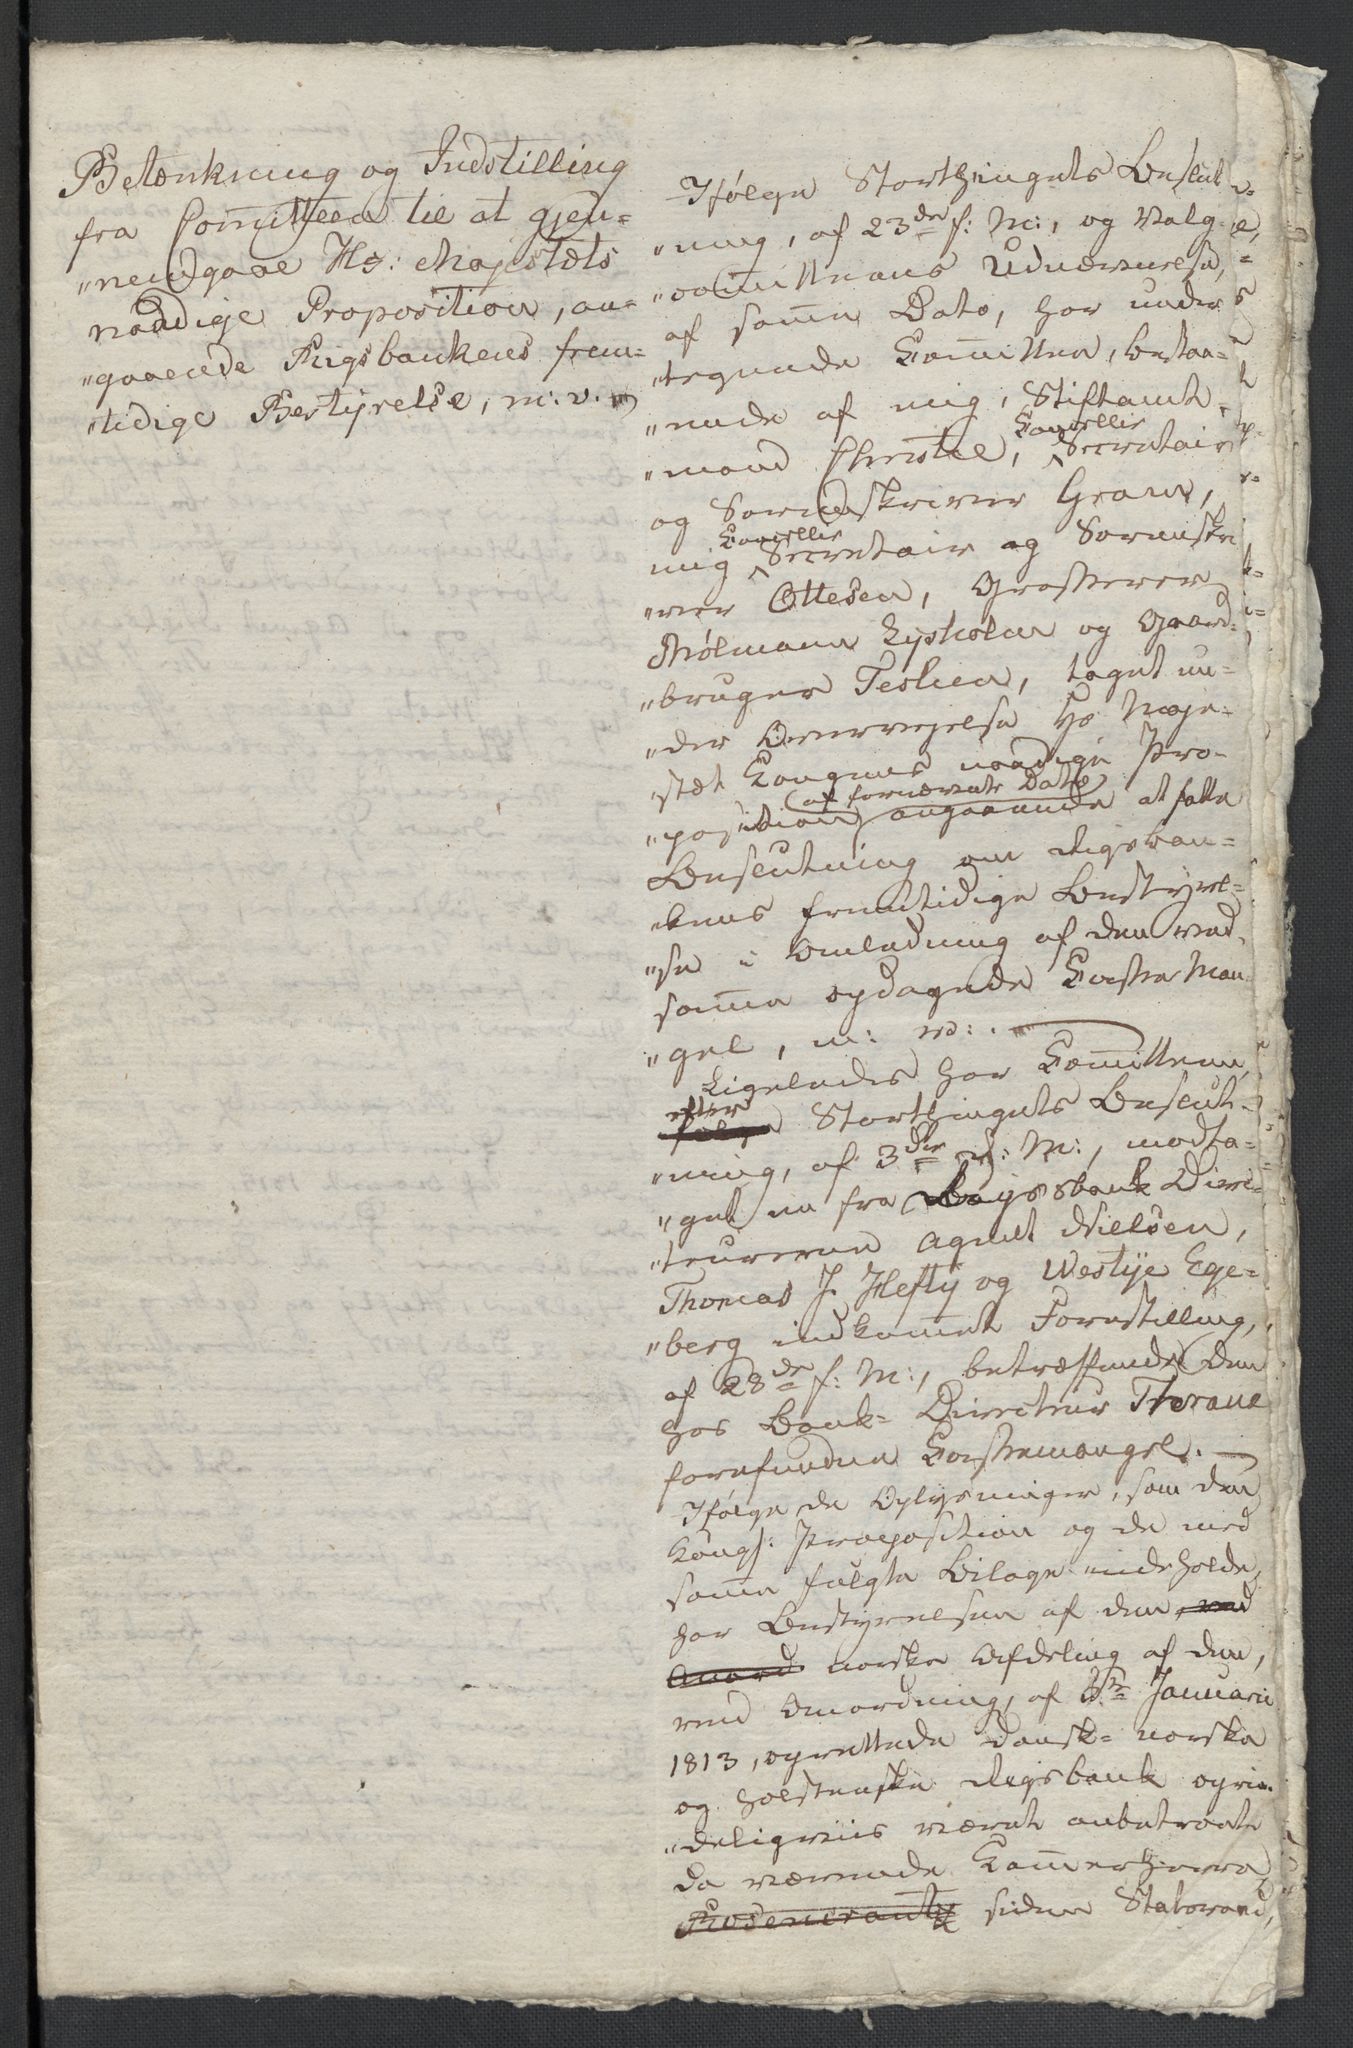 Betænkning og Indstilling
fra Comitteen til at gjen-
"nemgaae Hs: Majestæts
naadige Proposition, an-
"gaaende Rigsbankens frem-
"tidige Bestyrelse, m: v:
Ifølge Storthingets Beslut-
"ning, af 23de f: M:, og Valg-
"comitteens Udnævnelse,
af samme Dato, har under-
"tegnede Committee, bestaa-
"ende af mig, Stiftamt-
"mand Christie, Cancellie Secretair
og Sorenskriver Gram,
mig Cancellie Secretair og Sorenskri-
"ver Ottesen, Grosserer
Mølmann Lysholm og Gaard-
"bruger Teslien, taget un-
"der Overveielse Hs Maje-
stæt Kongens naadige Pro-
"position af fornævnte Dato angaaende at fatte
Beslutning om Rigsban-
"kens fremtidige Bestyrel-
"se i Anledning af den ved
samme opdagede Casse Man-
"gel, m: v:.
Ligeledes har Committeen,
efter følge Storthingets Beslut-
"ning, af 3die d: M:, modta-
"get en fra Rigsbank Direc-
"teurerne Agnet Nielsen,
Thomas J. Hefty og Westye Ege-
"berg indkommet Forestilling,
af 28de f: M:, betræffende den
hos Bank-Directeur Thrane
forefundne Cassemangel.
Ifølge de Oplysninger, som den
Kongl: Proposition og de med
samme fulgte Bilage indeholde,
har Bestyrelsen af den ved
Anord norske Afdeling af den,
ved Anordning, af 5te Januarii
1813, oprettede dansk-norske
og holstenske Rigsbank oprin-
"deligviis været anbetroet
da værende Kammerherre
Rosencrantz siden Statsraad,